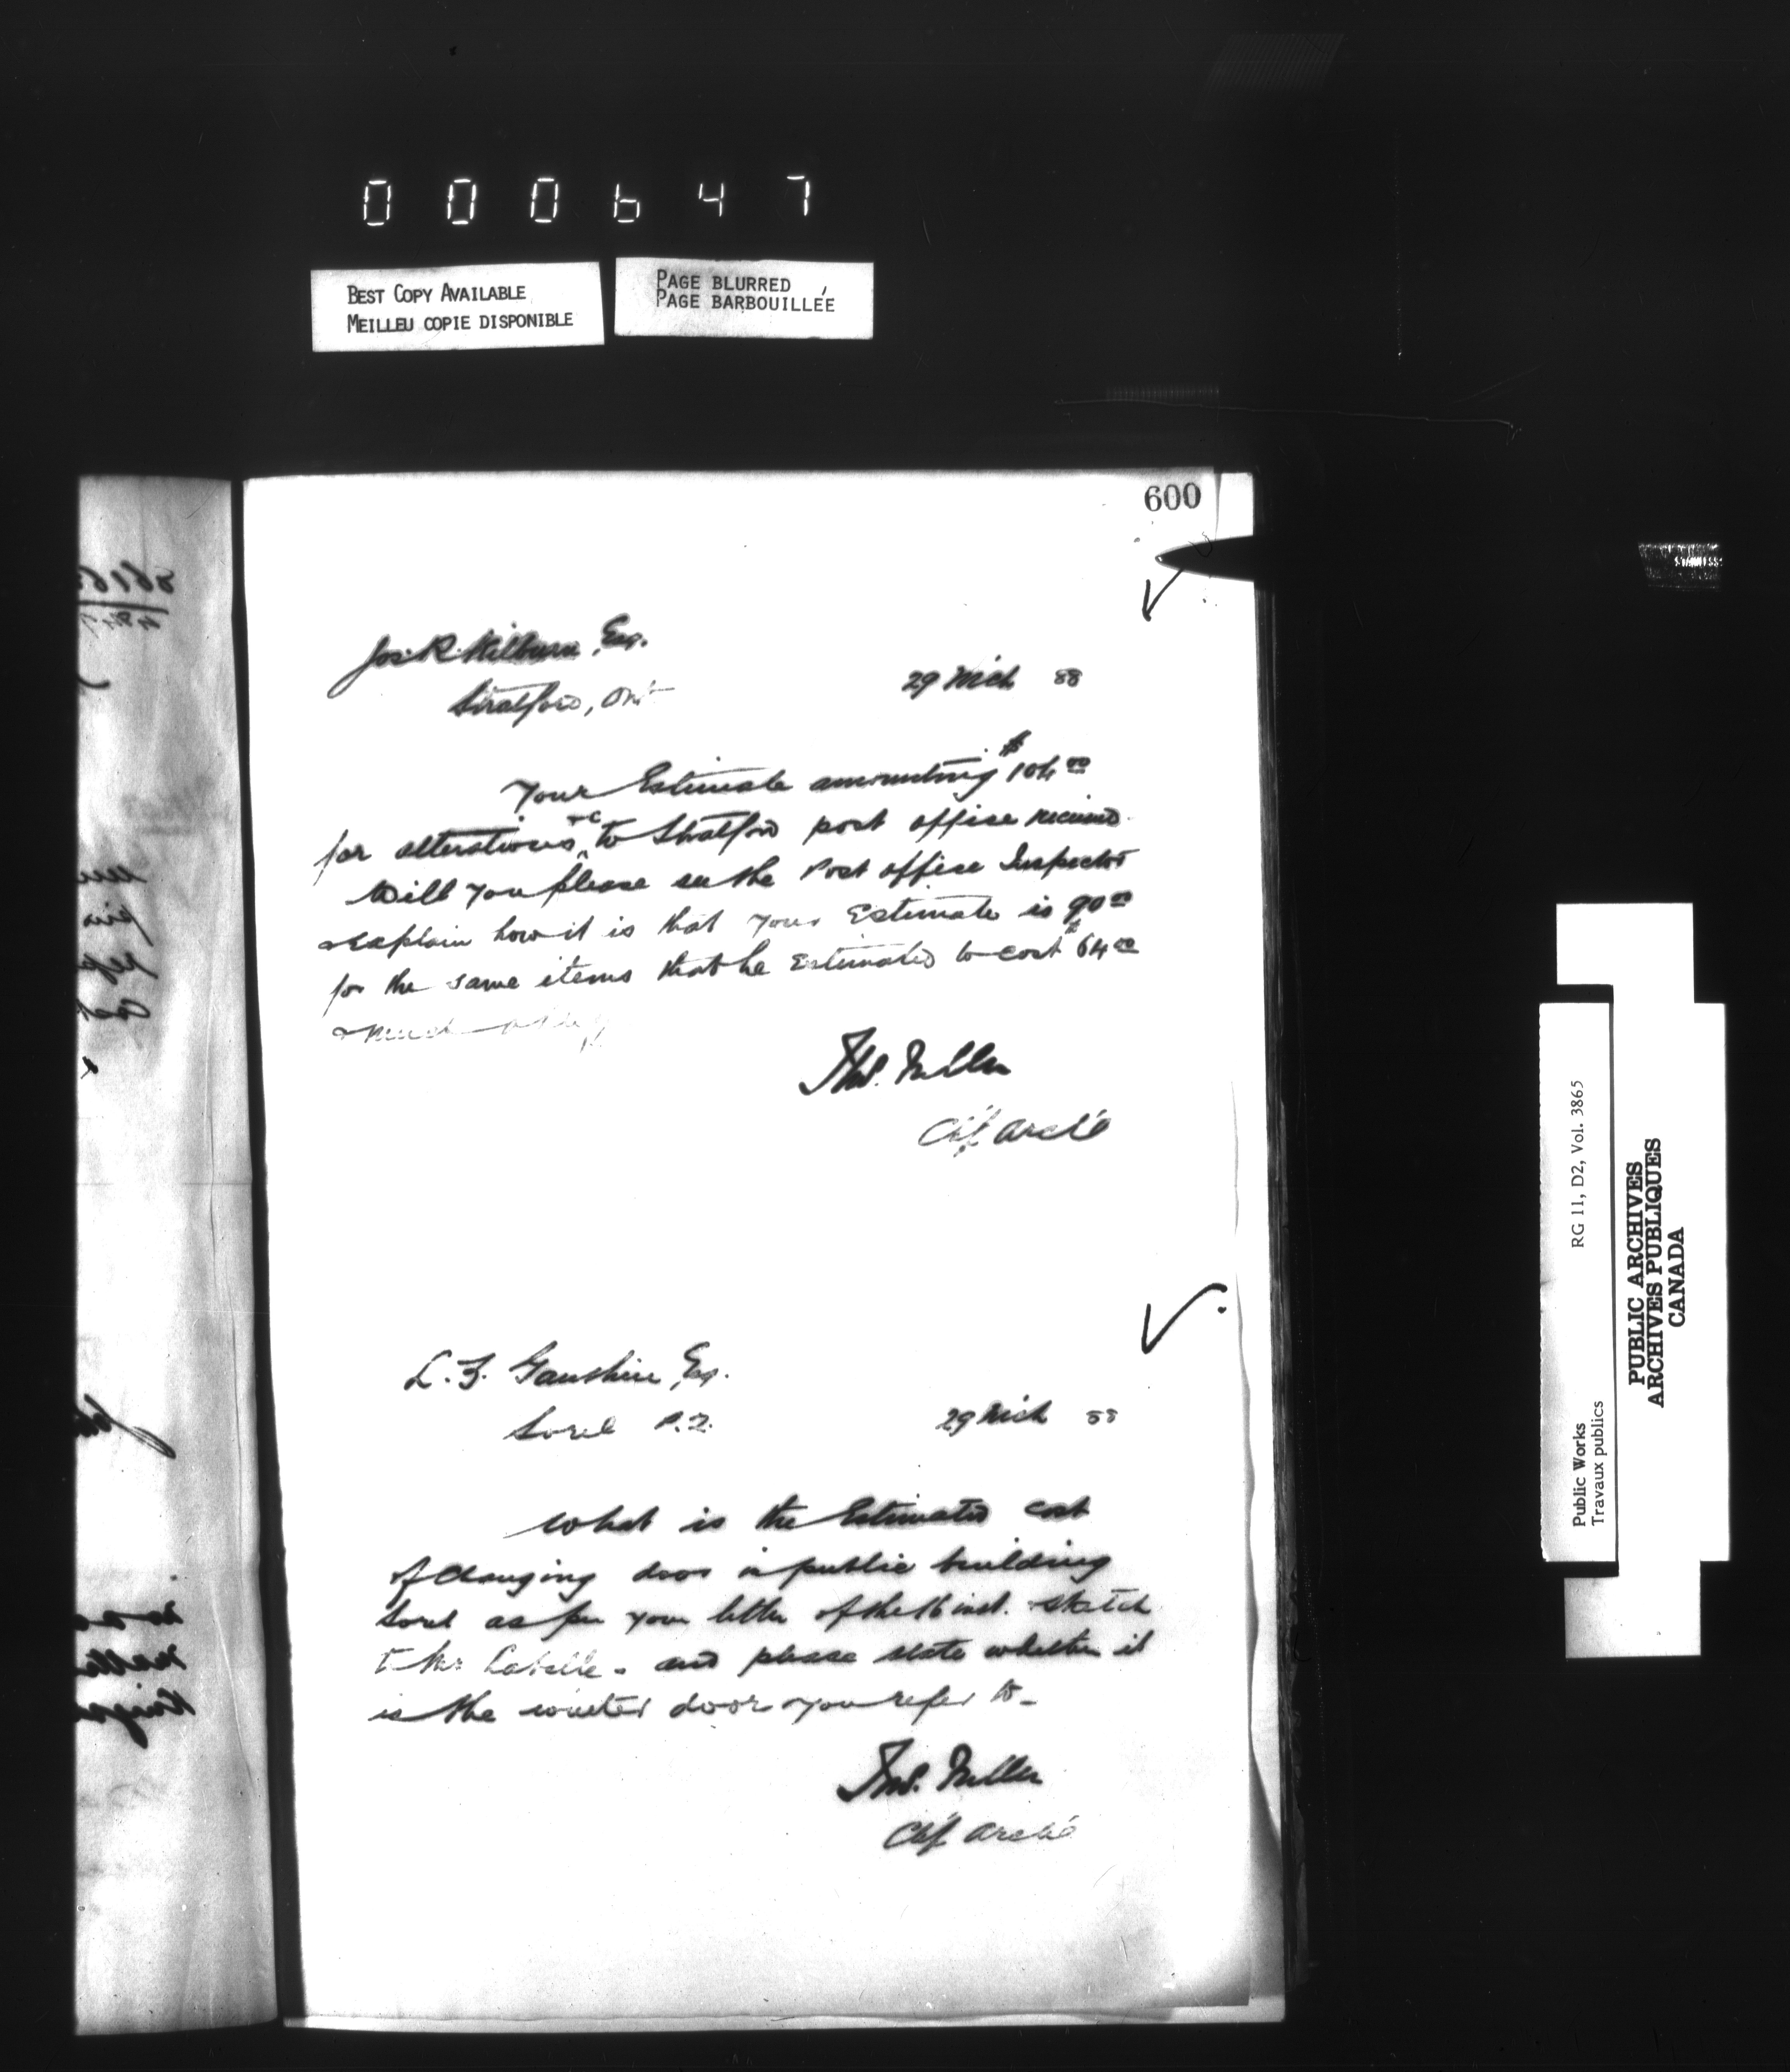 000647
BEST COPY AVAILABLE
MEILLEU COPIE DISPONIBLE
PAGE BLURRED
PAGE BARBOUILLÉE
600
Jos. R. Kilburn, Esq.
Stratford, Ont
29 Mch 88
Your Estimate amounting $104.00
for alterations &c to Stratford post office received
Will you please see the Post office Inspector
& explain how it is that your Estimate is 90.00
for the same items that he Estimated to cost $64.00
&
Thos. Fuller
Chf. Arch't
L. F. Gauthier, Esq.
Sorel P.Q.
29 Mch 88
What is the Estimated cost
of changing door in public building
Sorel as per your letter of the 16 inst. sketch
to Mr Labelle - and please state whether it
is the winter door you refer to -
Thos. Fuller
Chf. Arch't
Public Works
Travaux publics
RG 11, D2, Vol. 3865
PUBLIC ARCHIVES
ARCHIVES PUBLIQUES
CANADA